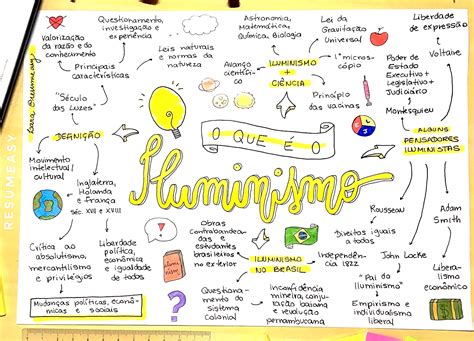 Valorização
da razão e do
conhecimento
Questionamento,
investigação e
experiência
Leis naturais e
normas da
natureza
Principais
características
"Século
das Luzes"
DEFINIÇÃO
Movimento
intelectual/
cultural
Inglaterra,
Holanda
e França
séc. XVII e XVIII
Crítica ao
absolutismo,
mercantilismo
e privilégios
Liberdade
política,
econômica
e igualdade
de todos
Mudanças políticas, econômi-
cas e sociais
O QUE É O
Iluminismo
Astronomia,
Matemática,
Química, Biologia
Lei da
Gravitação
Universal
Avanço
científico
ILUMINISMO
+
CIÊNCIA
1º micros-
cópio
Princípio
das vacinas
Liberdade
de expressão
Voltaire
Poder de
Estado
Executivo +
Legislativo +
Judiciário
Montesquieu
ALGUNS
PENSADORES
ILUMINISTAS
Rousseau
Direitos iguais
a todos
Adam
Smith
Libera-
lismo
econômico
John Locke
"Pai do
Iluminismo"
Empirismo e
individualismo
liberal
ILUMINISMO
NO BRASIL
Obras
Contrabandea-
das e
estudantes
brasileiros
no exterior
Independên-
cia 1822
Questiona-
mento do
sistema
colonial
Inconfidência
mineira, conju-
ração baiana e
revolução
pernambucana
RESUMEASY
L
E
J